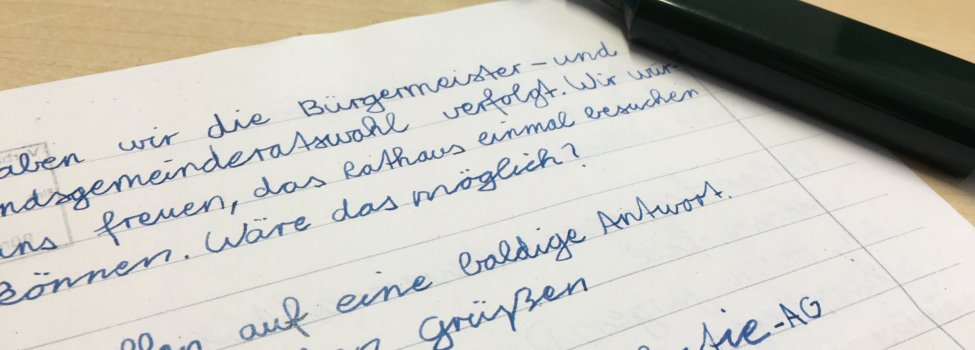 aben wir die Bürgermeister- und
ndsgemeinderatswahl verfolgt. Wir wür-
uns freuen, das Rathaus einmal besuchen
können. Wäre das möglich?
auf eine baldige Antwort.
Grüßen
tie-AG